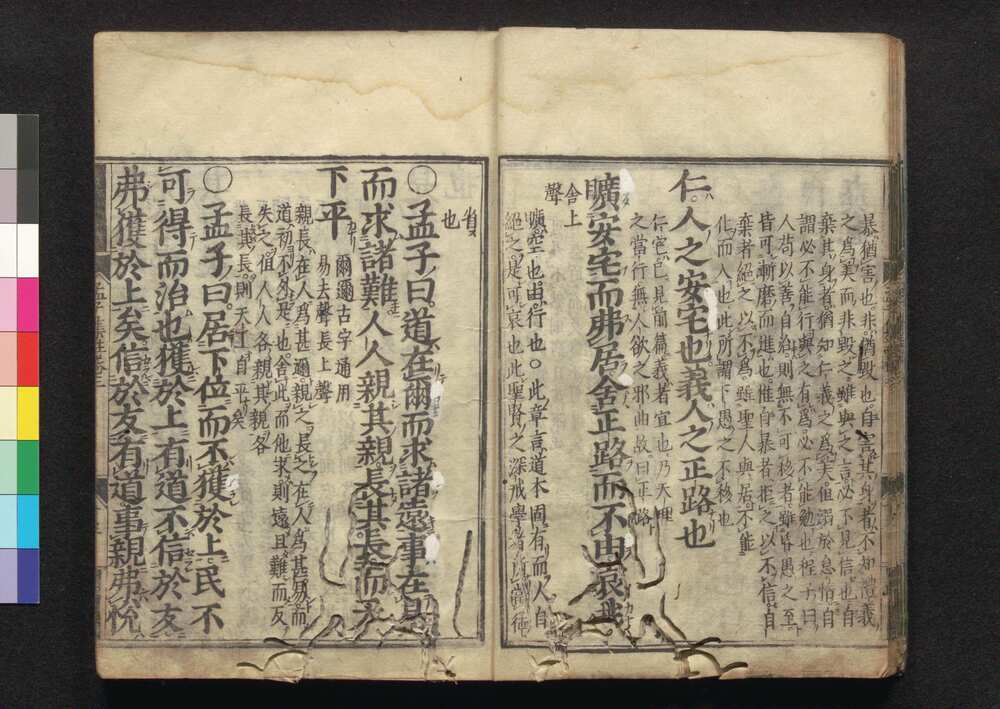 暴猶害也非猶毀也自害其身者不知禮義
之爲美而非毀之雖與之言必不見信也自
棄其身者猶知仁義之爲美但溺於怠惰自
謂必不能行與之有爲必不能勉也程子曰
人苟以善自治則無不可移者雖昏愚之至
皆可漸磨而進也惟自暴者拒之以不信自
棄者絕之以不爲雖聖人與居不能
化而入也此所謂下愚之不移也
仁人之安宅也義人之正路也
仁宅已見前篇義者宜也乃天理
之當行無人欲之邪曲故曰正路
曠安宅而弗居舍正路而不由哀哉
舍上
聲
曠空也由行也○此章言道本固有而人自
絕之是可哀也此聖賢之深戒學者所當
省
也
○孟子曰道在爾而求諸遠事在易
而求諸難人人親其親長其長而天
下平
爾邇古字通用
易去聲長上聲
親長在人爲甚邇親之長之在人爲甚易而
道初不外是也舍此而他求則遠且難而反
失之但人人各親其親各
長其長則天下自平矣
○孟子曰居下位而不獲於上民不
可得而治也獲於上有道不信於友
弗獲於上矣信於友有道事親弗悅